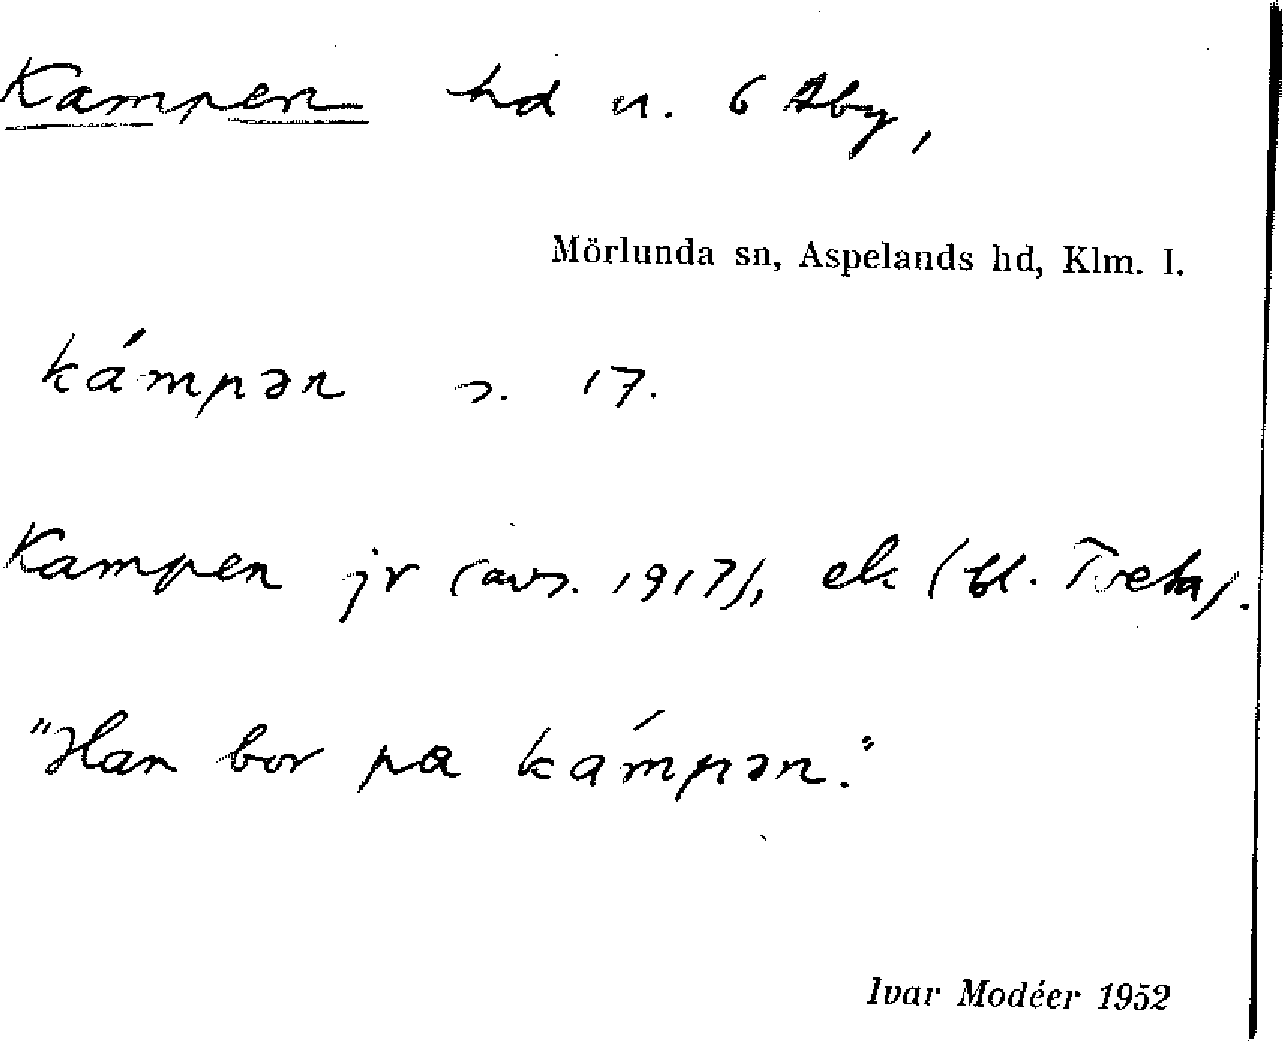 Kampen hd u. 6 Åby,
Mörlunda sn, Aspelands hd, Klm. l.
kámpən s. 17.
Kampen jr (avs. 1917), ek (bl. Tveta).
"Han bor på kámpən."
Ivar Modéer 1952